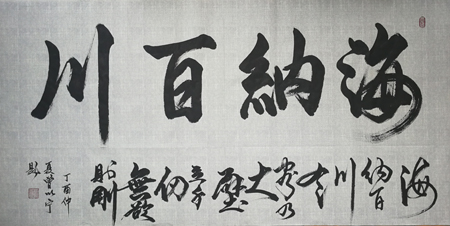 海納百川
海
納百
川
有
容乃
大
壁
立千
仞
無欲
則剛
丁酉仲
夏曾以宁
题